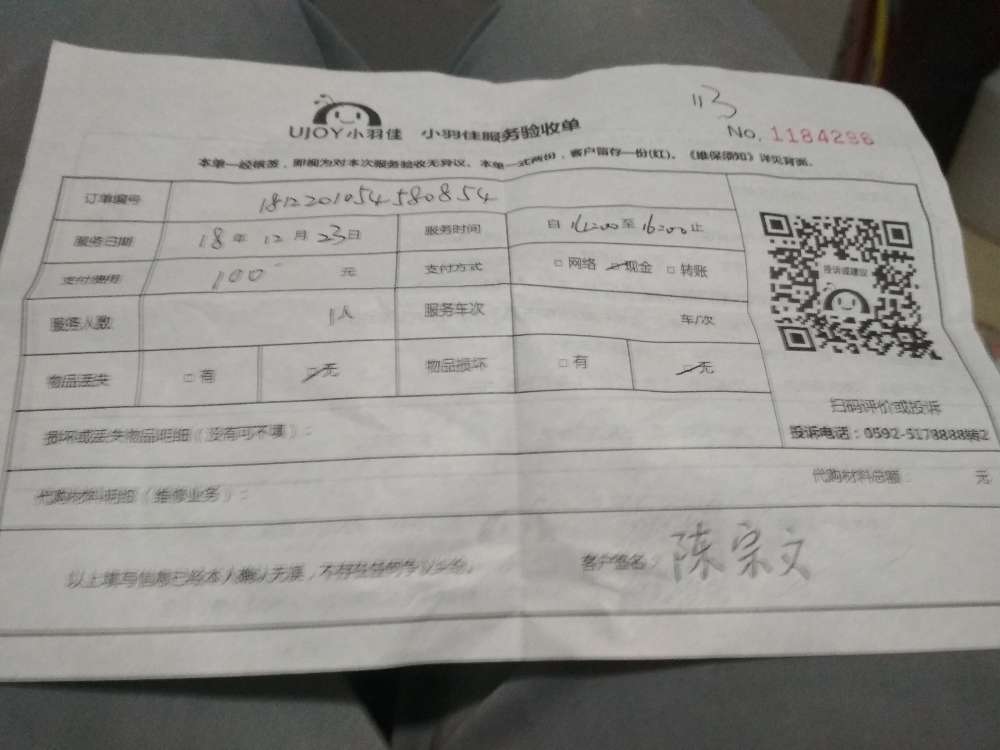 113
UJOY小羽佳 小羽佳服务验收单
No. 1184286
本单一经根签，即视为对本次服务验收无异议。本单一式两份，客户留存一份(红)。《维保须知》详见背面。
订单编号 1812201054580854
服务日期 18年12月23日 服务时间 自 至16:00止
支付费用 100元 支付方式 □网络 ☑现金 □转账
服务人数 1人 服务车次 车/次
物品丢失 □有 ☑无 物品损坏 □有 ☑无
投诉或建议
扫码评价或投诉
投诉电话：0592-5178888转2
损坏或丢失物品明细（没有可不填）：
代购材料明细（维修业务）： 代购材料总额： 元
以上填写信息已经本人确认无误，不存在任何争议纠纷。 客户签名：陈宗文